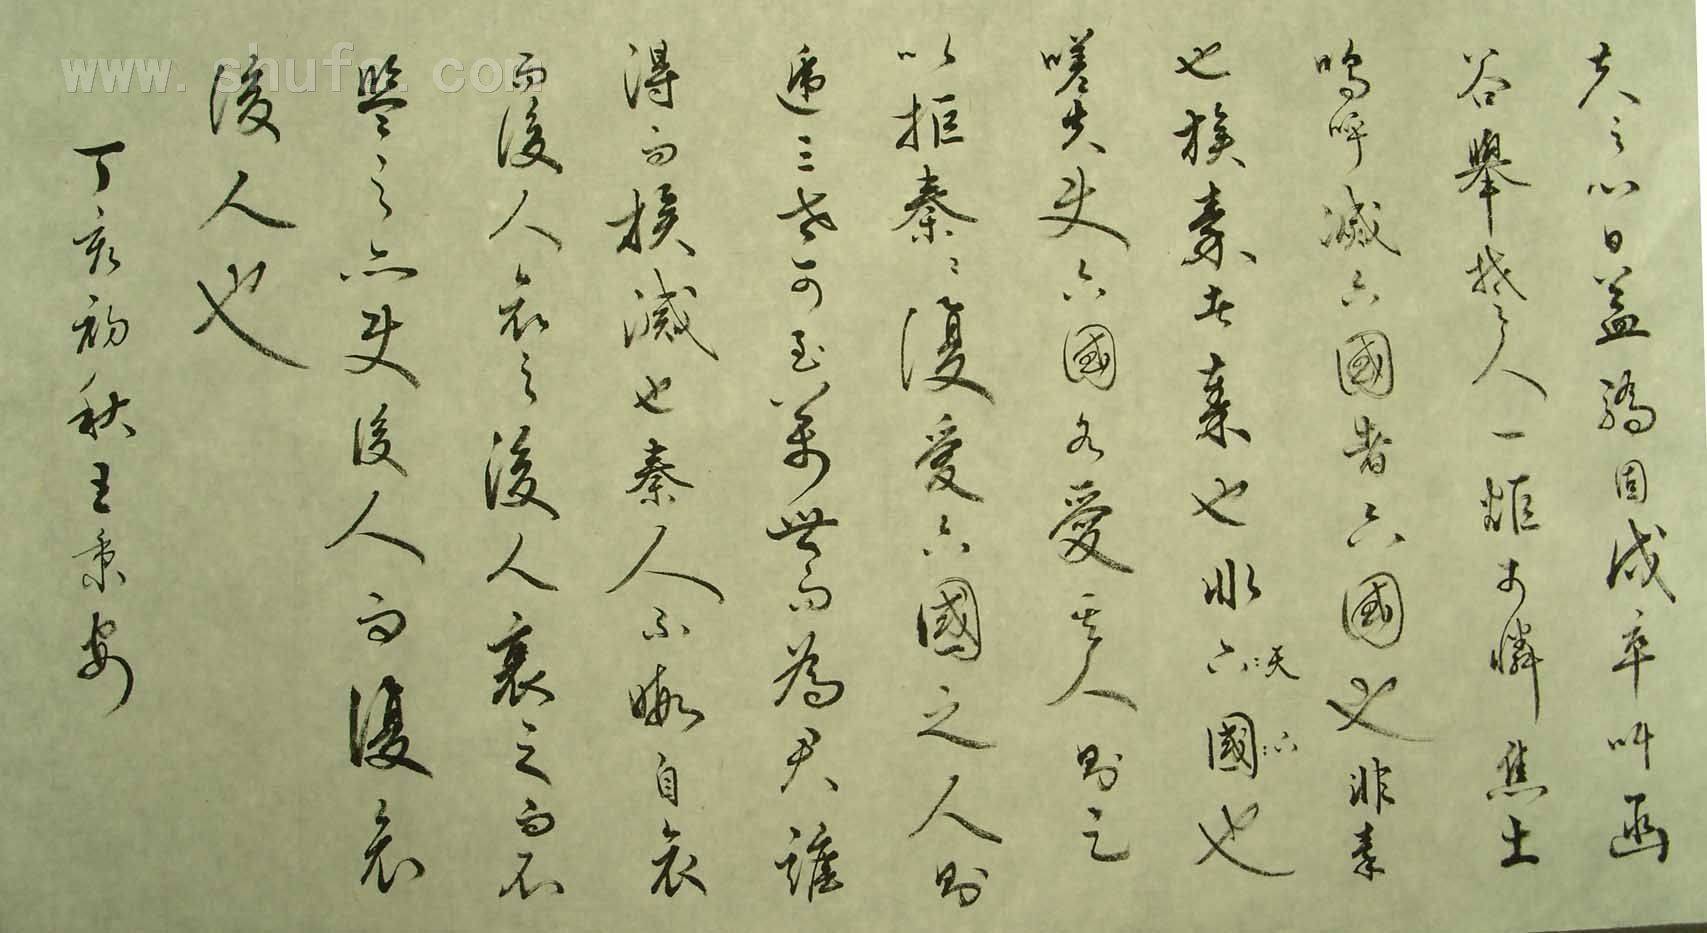 夫之心日益驕固戍卒叫函
谷舉楚人一炬可憐焦土
嗚呼滅六國者六國也非秦
也族秦者秦也非六國也
天下
嗟夫使六國各愛其人則足
以拒秦〻復愛六國之人則
遞三世可至萬世而為君誰
得而族滅也秦人不暇自哀
而後人哀之後人哀之而不
鑒之亦使後人而復哀
後人也
丁亥初秋王秉安
www.shufa.com